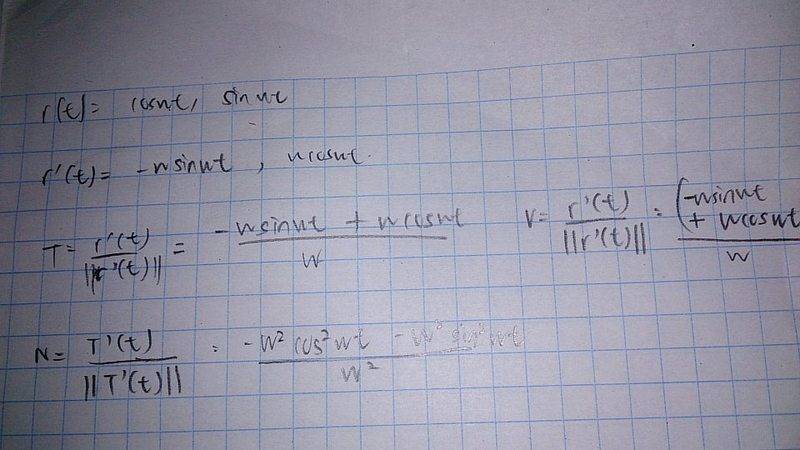 r(t) = coswt, sin wt
r'(t) = -wsinwt, wcoswt.
T = r'(t) / ||r'(t)|| = -wsinwt + wcoswt / w
V = r'(t) / ||r'(t)|| = (-wsinwt + wcoswt / w
N = T'(t) / ||T'(t)|| = -w² cos² wt - w² sin² wt / w²